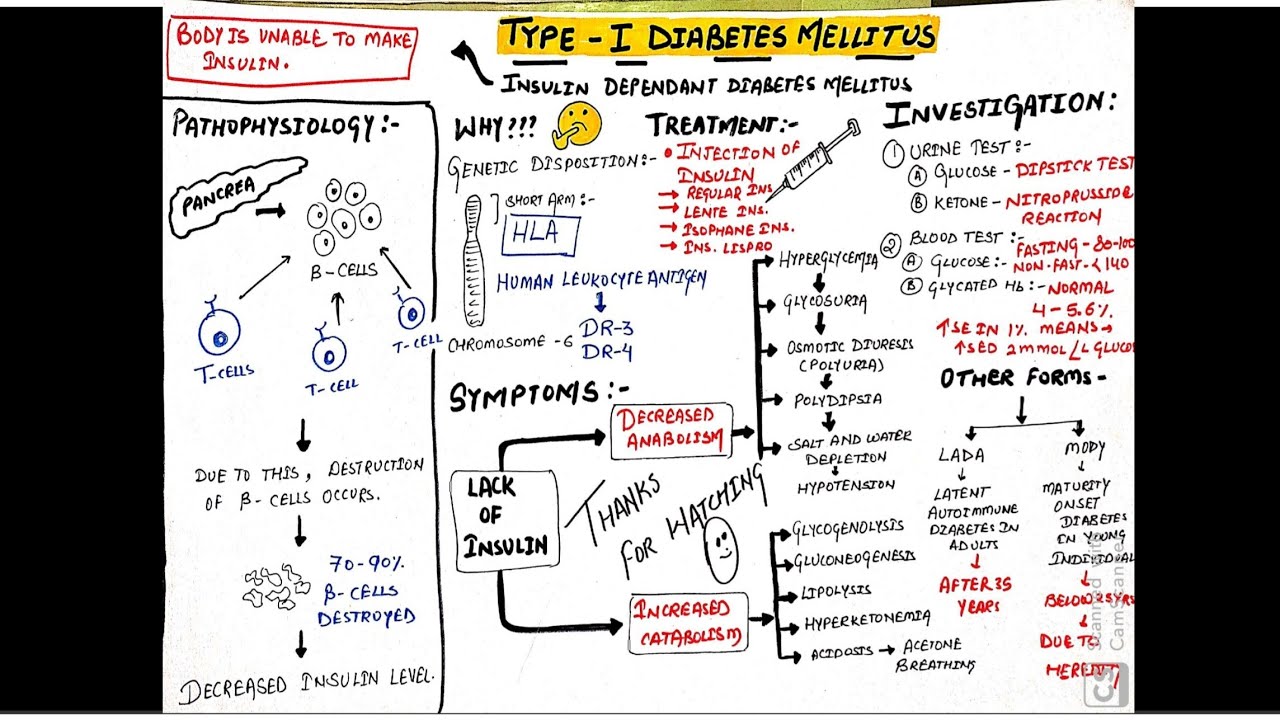 BODY IS UNABLE TO MAKE
INSULIN.
TYPE - I DIABETES MELLITUS
INSULIN DEPENDANT DIABETES MELLITUS
PATHOPHYSIOLOGY:-
PANCREA
B-CELLS
T-CELLS
T-CELL
T-CELL
DUE TO THIS, DESTRUCTION
OF B-CELLS OCCURS.
70-90%
B-CELLS
DESTROYED
DECREASED INSULIN LEVEL.
WHY???
GENETIC DISPOSITION:-
SHORT ARM:-
HLA
HUMAN LEUKOCYTE ANTIGEN
DR-3
DR-4
CHROMOSOME -6
TREATMENT:-
• INJECTION OF
INSULIN
→ REGULAR INS.
→ LENTE INS.
→ ISOPHANE INS.
→ INS. LISPRO
INVESTIGATION:
① URINE TEST:-
Ⓐ GLUCOSE - DIPSTICK TEST
Ⓑ KETONE - NITROPRUSSIDE
REACTION
② BLOOD TEST:-
Ⓐ GLUCOSE:- FASTING - 80-100
NON-FAST-<140
Ⓑ GLYCATED Hb:- NORMAL
4-5.6%
↑SE IN 1% MEANS →
↑SED 2mmol/L GLUCO
SYMPTOMS:-
LACK
OF
INSULIN
DECREASED
ANABOLISM
HYPERGLYCEMIA
GLYCOSURIA
OSMOTIC DIURESIS
(POLYURIA)
POLYDIPSIA
SALT AND WATER
DEPLETION
HYPOTENSION
THANKS
FOR WATCHING
INCREASED
CATABOLISM
GLYCOGENOLYSIS
GLUCONEOGENESIS
LIPOLYSIS
HYPERKETONEMIA
ACIDOSIS → ACETONE
BREATHING
OTHER FORMS-
LADA
LATENT
AUTOIMMUNE
DIABETES IN
ADULTS
AFTER 35
YEARS
MODY
MATURITY
ONSET
DIABETES
IN YOUNG
INDIVIDUAL
BELOW 25YRS
DUE TO
CS
Scanned with
CamScanner